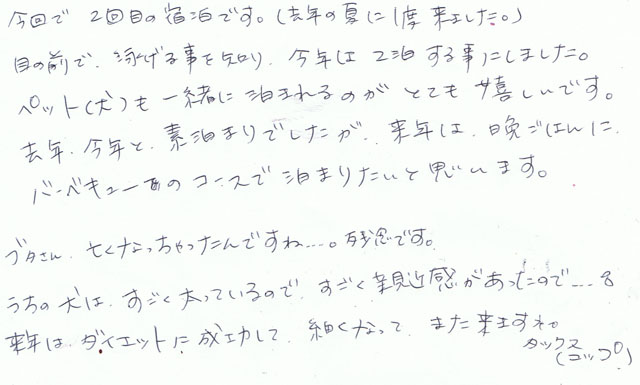 今回で 2回目の宿泊です。(去年の夏に1度来ました。)
目の前で、泳げる事を知り、今年は2泊する事にしました。
ペット(犬)も一緒に泊まれるのがとても嬉しいです。
去年、今年と、素泊まりでしたが、来年は、晩ごはんに、
バーベキューのコースで泊まりたいと思います。
ブタさん、亡くなっちゃったんですね…。残念です。
うちの犬は、すごく太っているので、すごく親近感があったので…。
来年は、ダイエットに成功して、細くなって、また来ますね。
ダックス
(コップ)